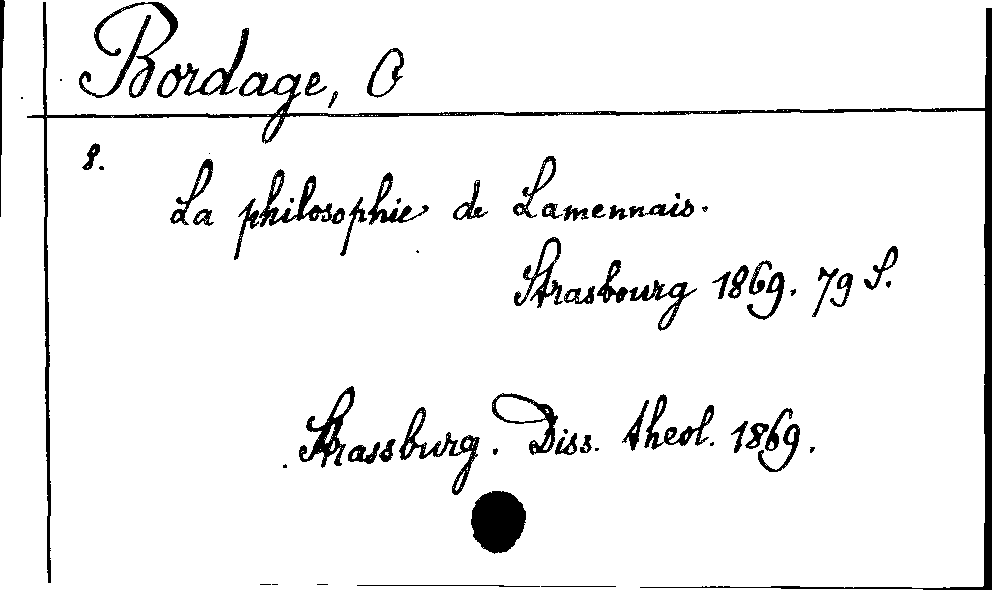 Bordage, O
8.
La philosophie de Lamennais.
Strasbourg 1869. 79 S.
Strassburg. Diss. theol. 1869.